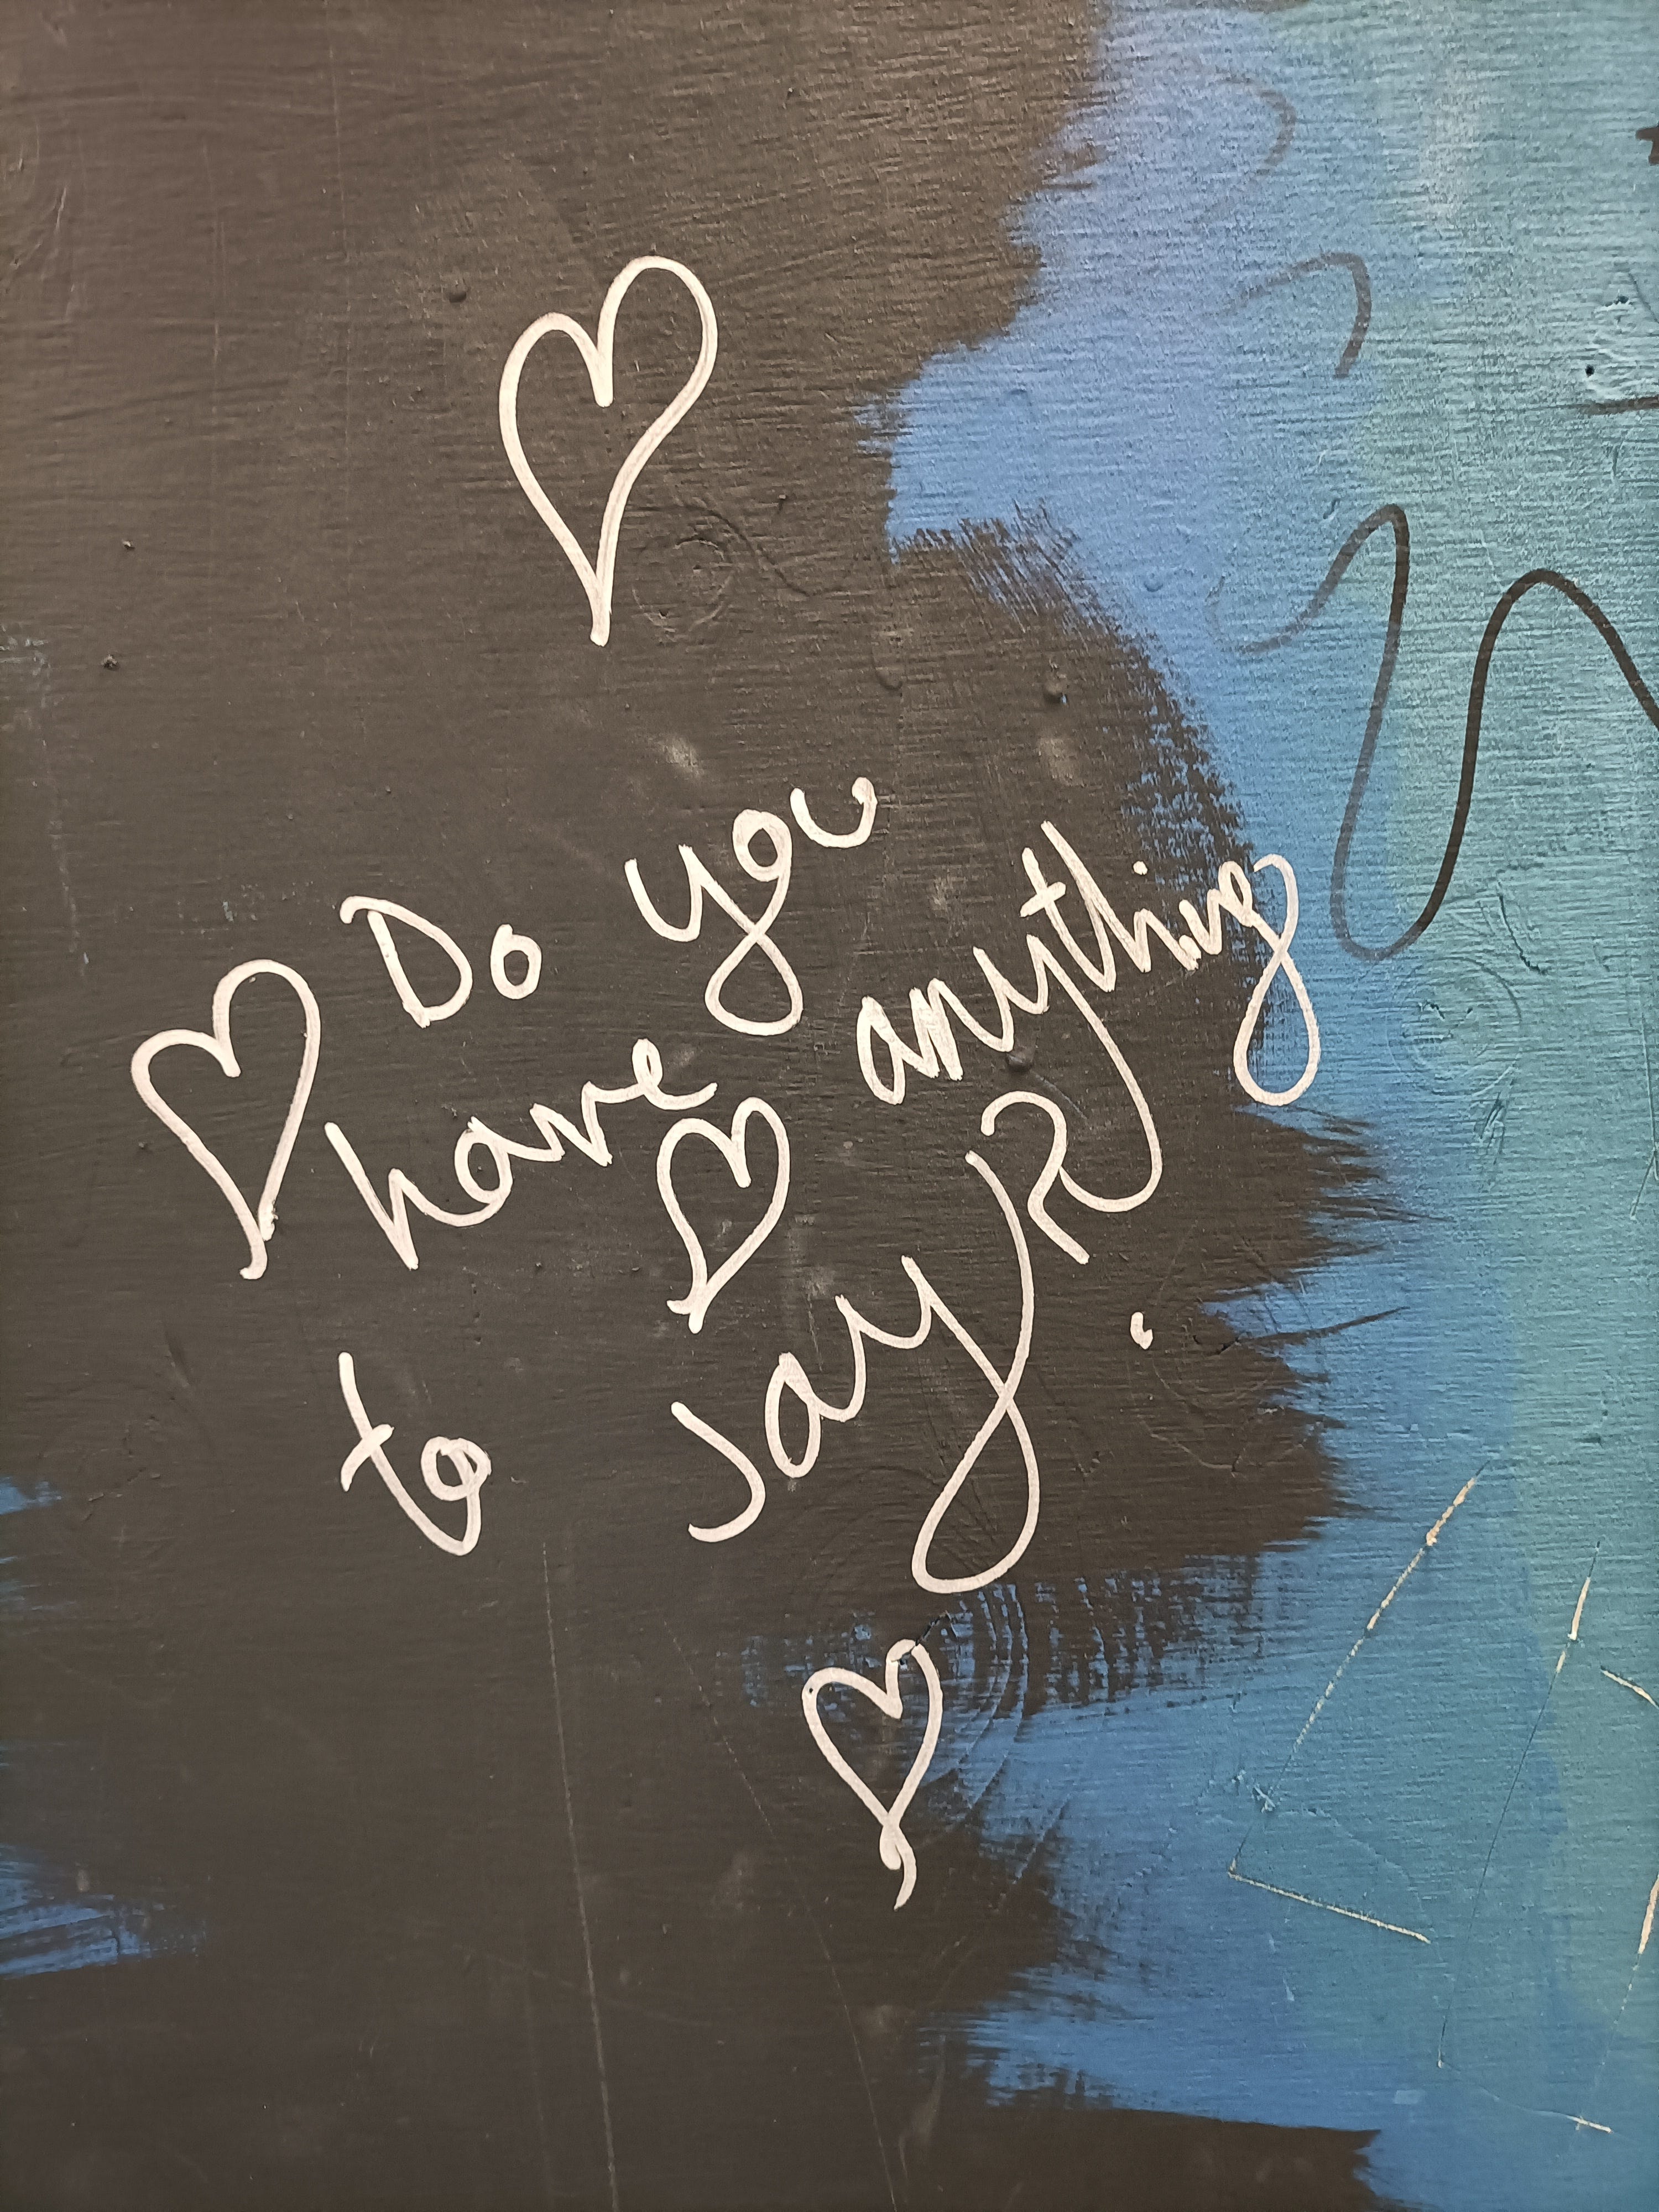 Do you
have anything
to say?